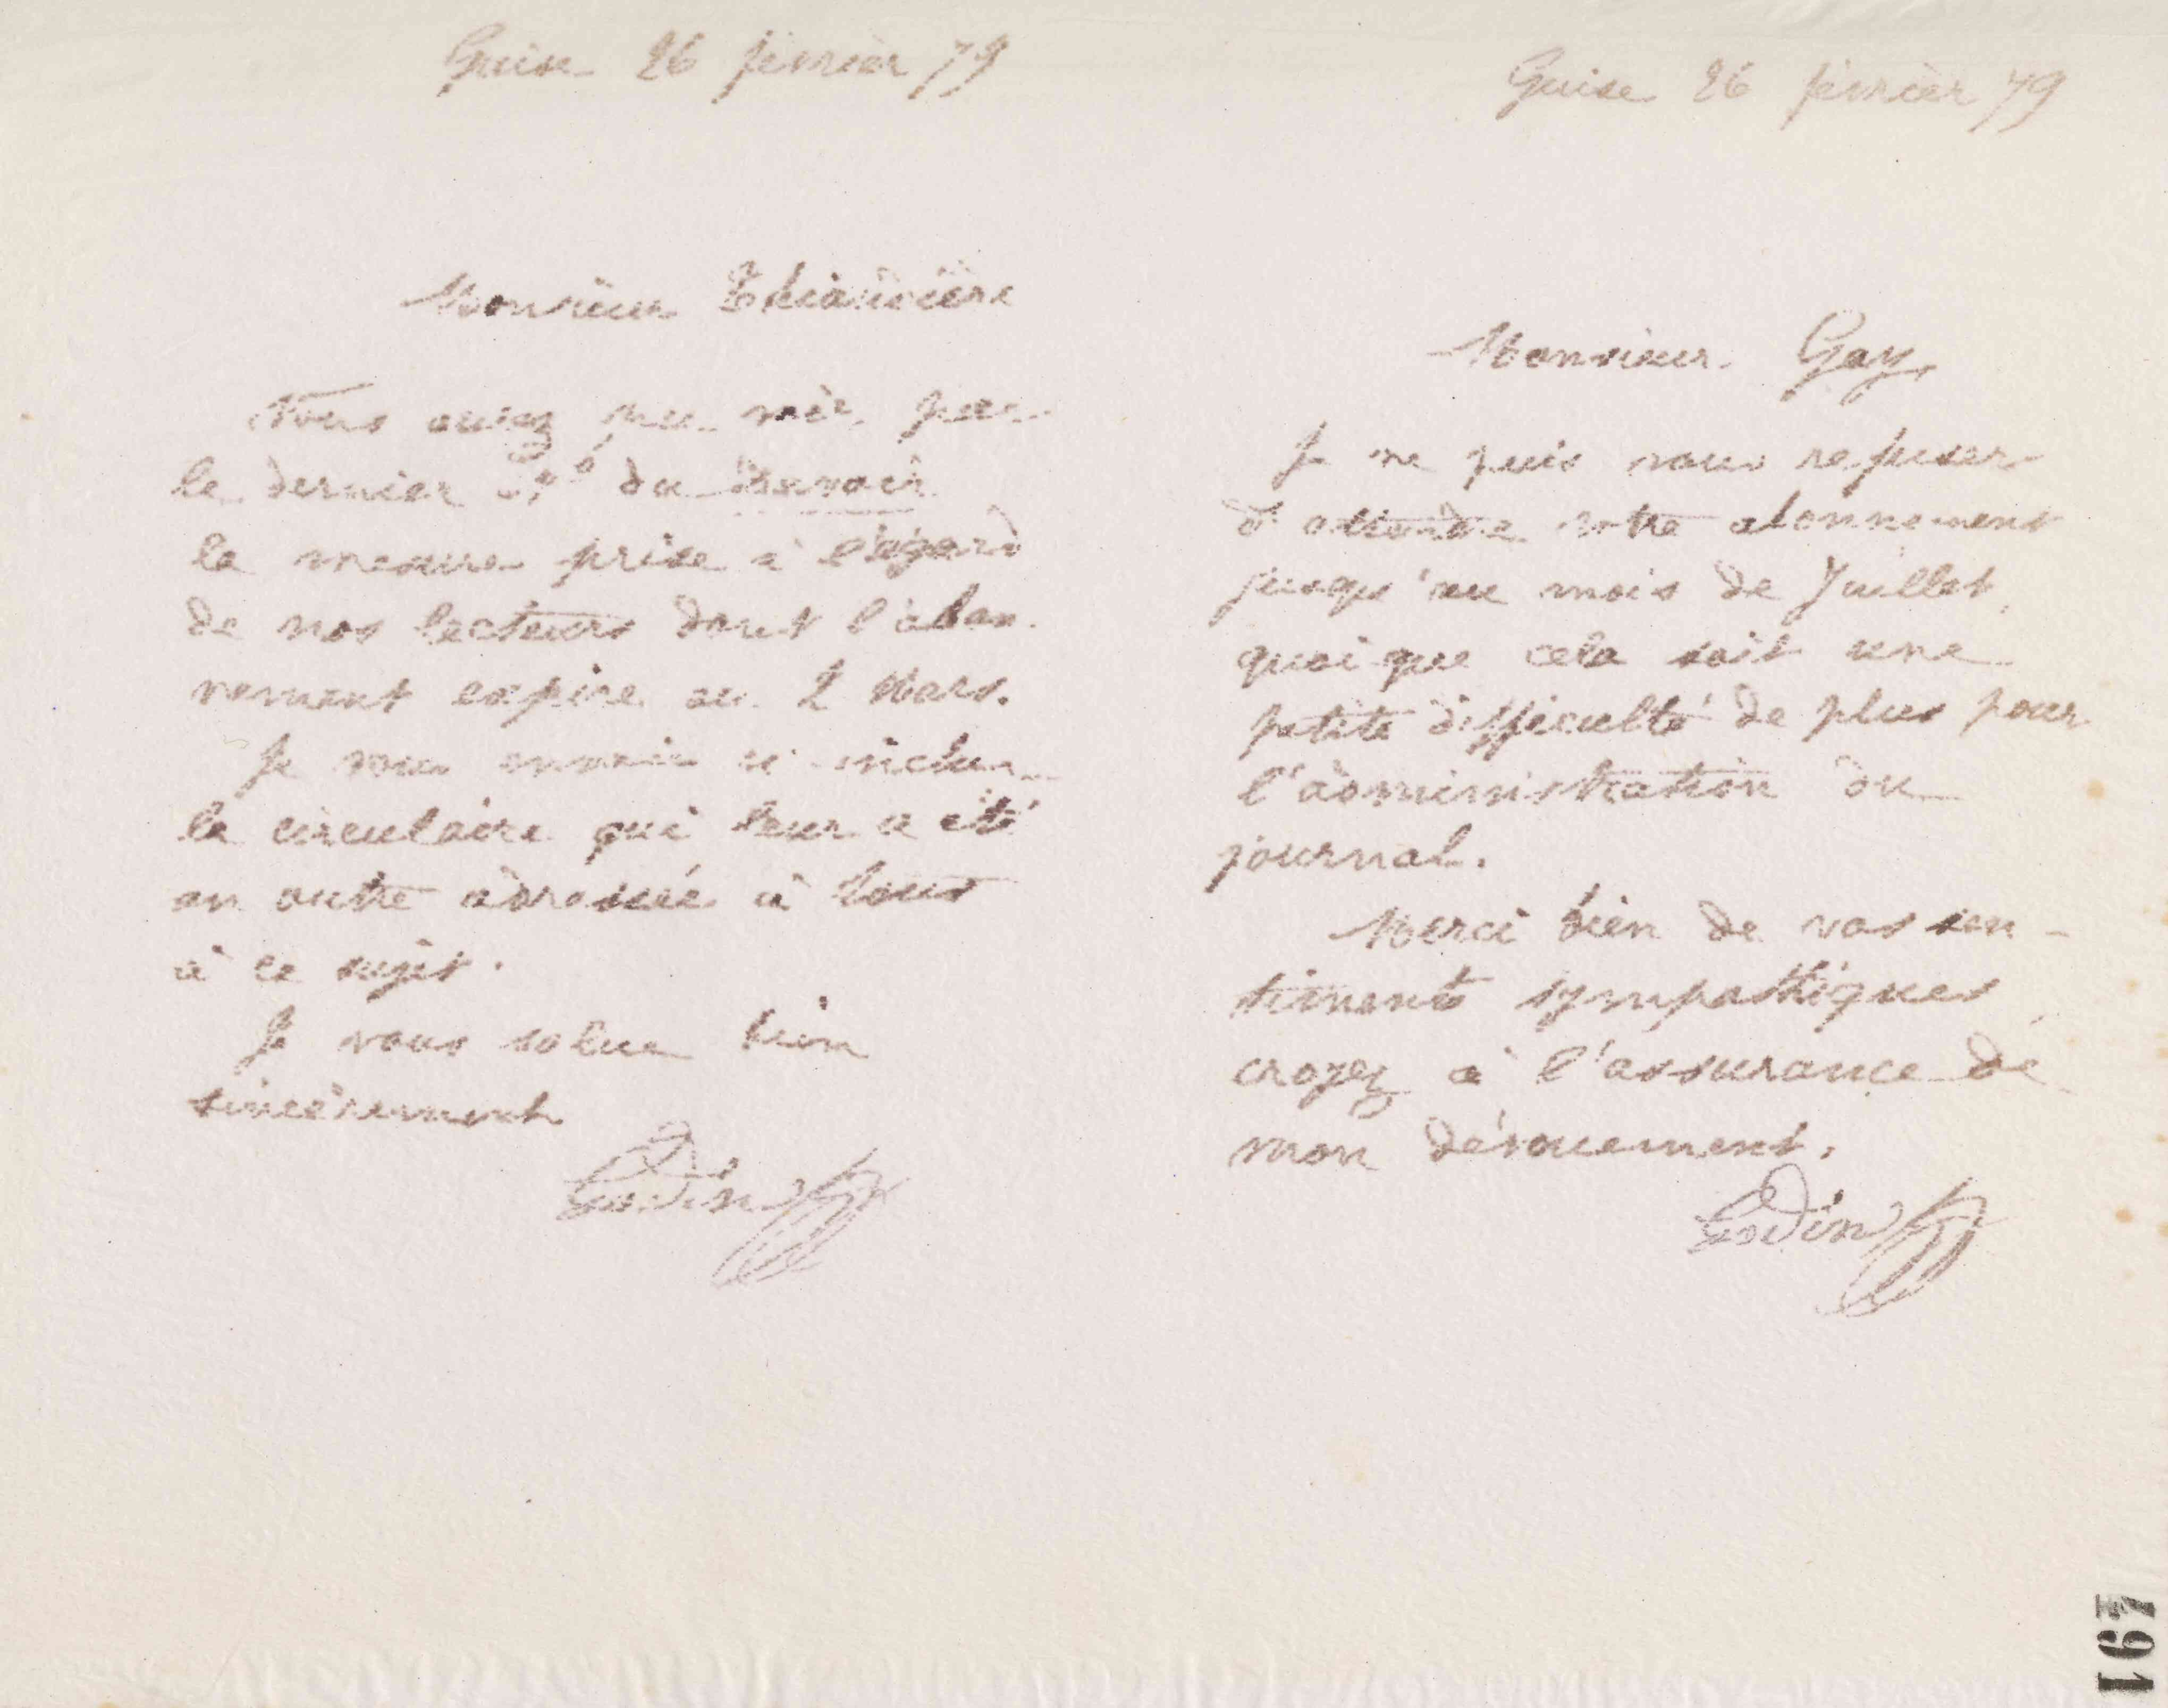 Guise 26 février 79
Monsieur Thiaudière
Vous avez pu voir par
le dernier N° du Devoir
la mesure prise à l'égard
de nos lecteurs dont l'abon
nement expire au 2 Mars.
Je vous envoie ci-inclus
la circulaire qui leur a été
en outre adressée à tous
à ce sujet.
Je vous salue bien
sincèrement
Godin
Guise 26 février 79
Monsieur Gay,
Je ne puis vous refuser
d'attendre votre abonnement
jusqu'au mois de Juillet,
quoique cela soit une
petite difficulté de plus pour
l'administration du
journal.
Merci bien de vos sen-
timents sympathiques,
croyez à l'assurance de
mon dévouement.
Godin
167